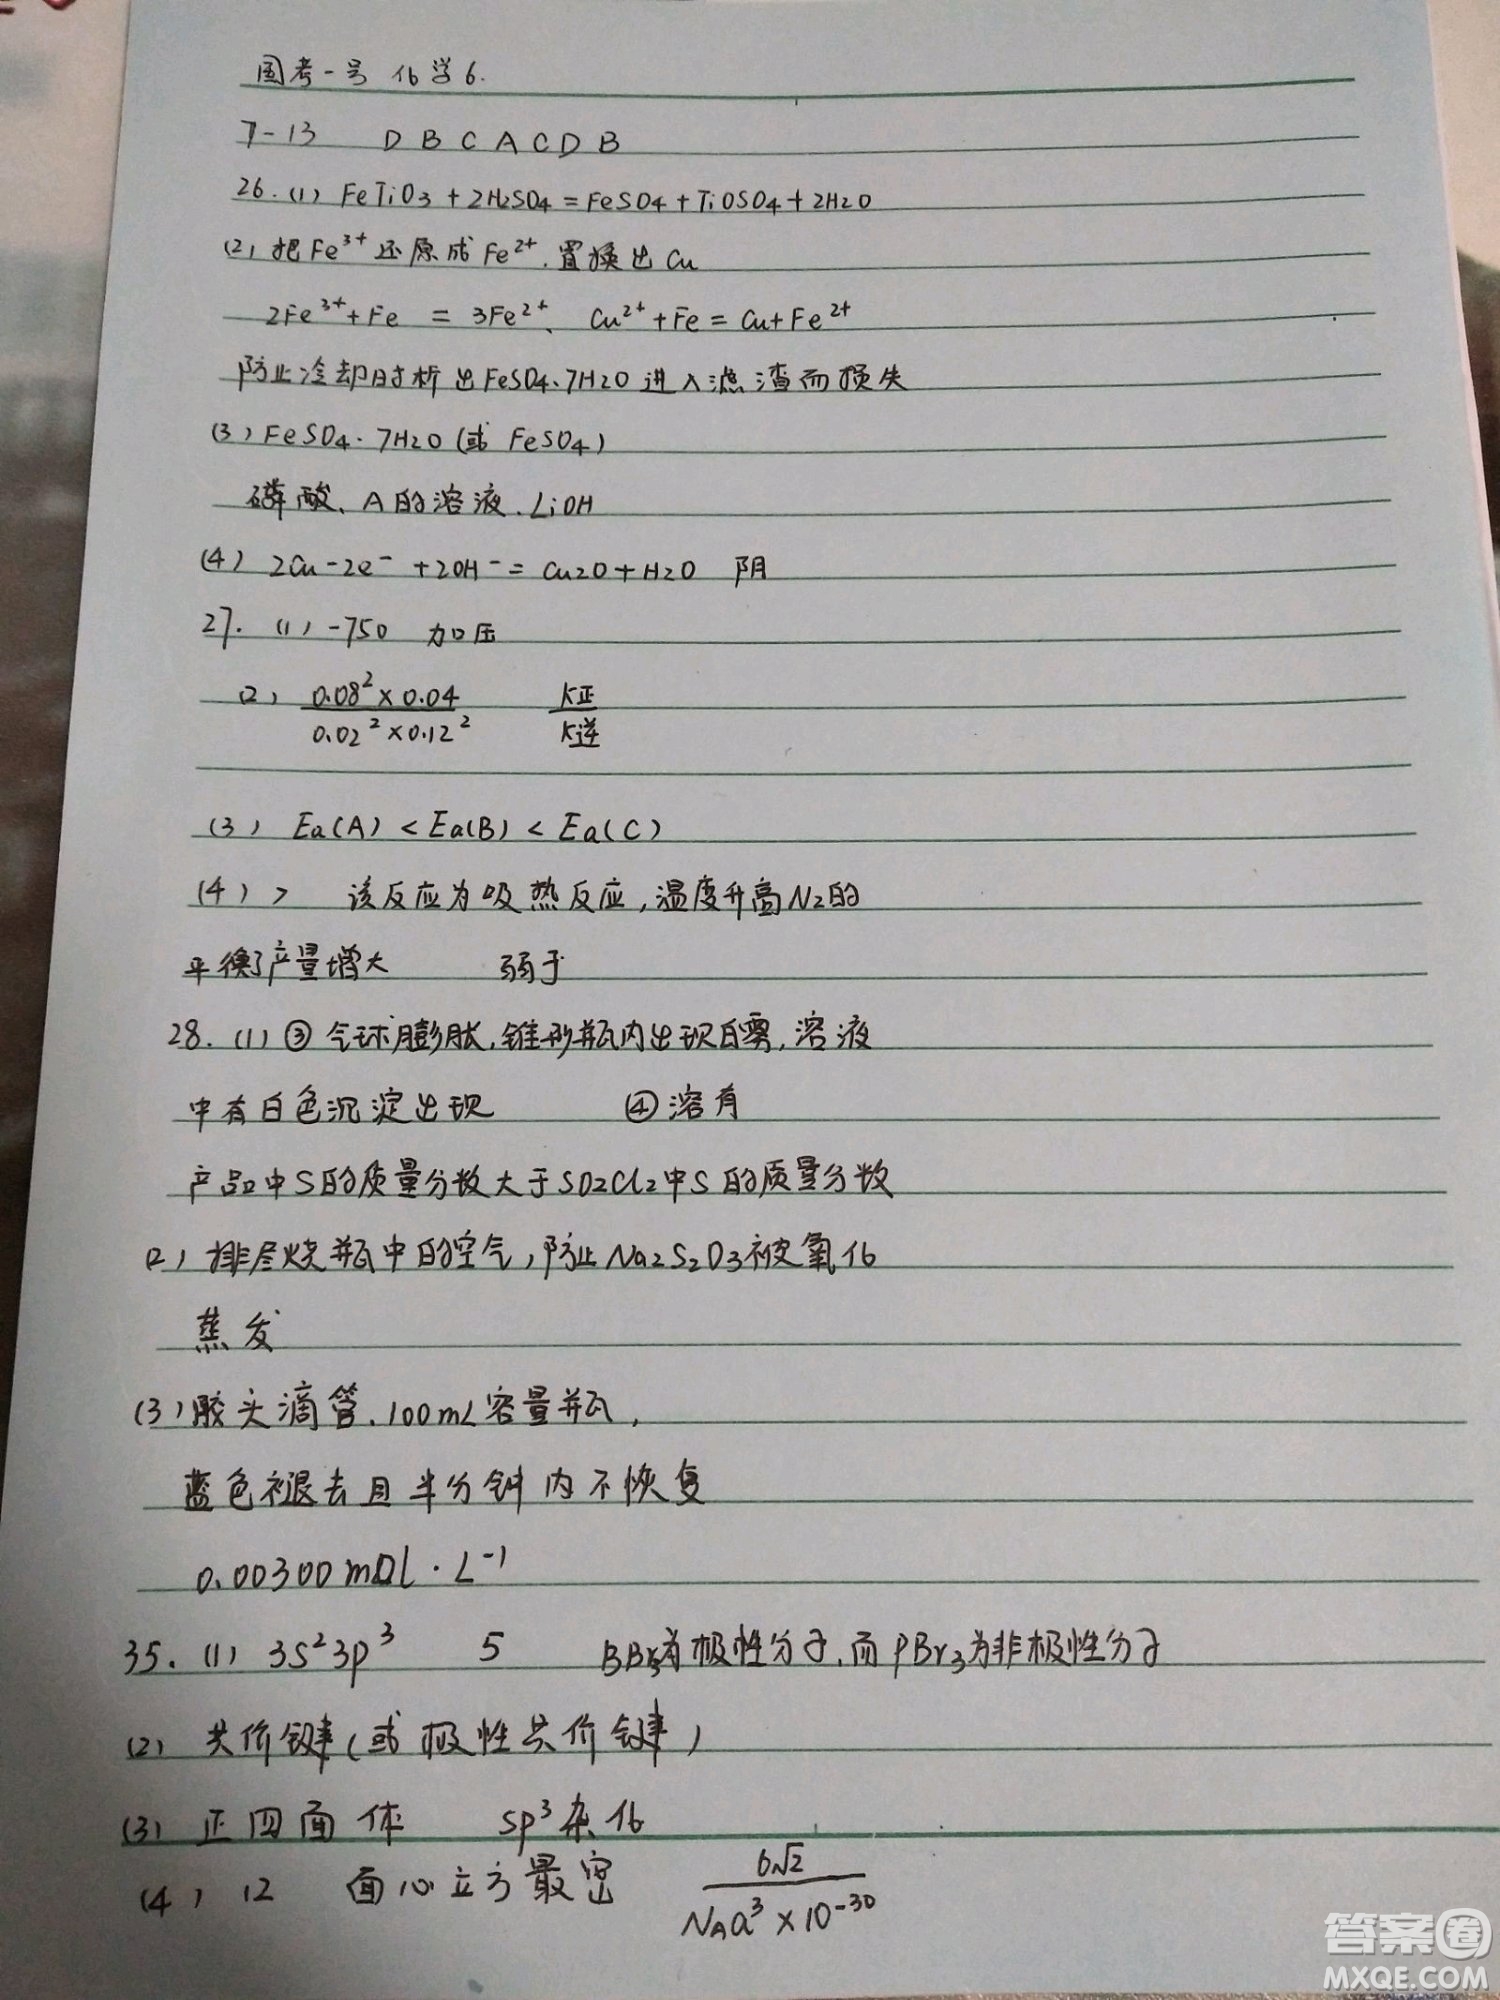 国考一号 化学6.
7-13 D B C A C D B
26.(1) FeTiO3+2H2SO4=FeSO4+TiOSO4+2H2O
(2) 把Fe³⁺还原成Fe²⁺.置换出Cu
2Fe³⁺+Fe = 3Fe²⁺、 Cu²⁺+Fe=Cu+Fe²⁺
防止冷却时析出FeSO4·7H2O进入滤渣而损失
(3) FeSO4·7H2O(或 FeSO4)
磷酸、A的溶液.LiOH
(4) 2Cu-2e⁻+2OH⁻=Cu2O+H2O 阴
27. (1) -750 加压
(2) 0.08²×0.04/0.02²×0.12² K正/K逆
(3) Ea(A)<Ea(B)<Ea(C)
(4) > 该反应为吸热反应,温度升高N2的
平衡产量增大 弱于
28.(1)③气球膨胀,锥形瓶内出现白雾,溶液
中有白色沉淀出现 ④溶有
产品中S的质量分数大于SO2Cl2中S的质量分数
(2) 排尽烧瓶中的空气,防止Na2S2O3被氧化
蒸发
(3)胶头滴管、100mL容量瓶,
蓝色褪去且半分钟内不恢复
0.00300mol·L⁻¹
35.(1) 3s²3p³ 5 BBr3为极性分子,而PBr3为非极性分子
(2) 共价键(或极性共价键)
(3) 正四面体 sp³杂化
(4) 12 面心立方最密 6√2/NAa³×10⁻³⁰
答案圈
MXQE.COM